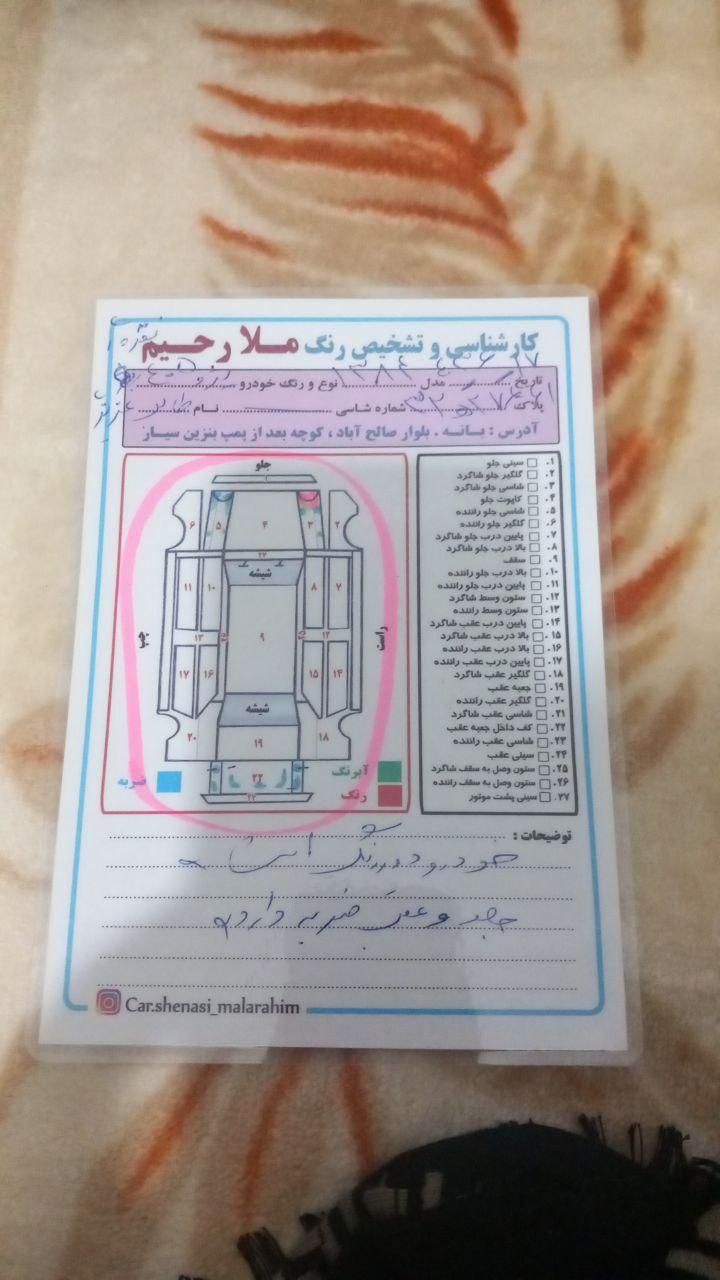 کارشناسی و تشخیص رنگ مـلا رحـیم
نقره‌ای
تاریخ مدل ۱۳۸۴ نوع و رنگ خودرو پژو ۴۰۵
پلاک شماره شاسی نـام
آدرس : بـانـه . بلوار صالح آباد ، کوچه بعد از پمپ بنزین سیـار
۱. سینی جلو
۲. گلگیر جلو شاگرد
۳. شاسی جلو شاگرد
۴. کاپوت جلو
۵. شاسی جلو راننده
۶. گلگیر جلو راننده
۷. پایین درب جلو شاگرد
۸. بالا درب جلو شاگرد
۹. سقف
۱۰. بالا درب جلو راننده
۱۱. پایین درب جلو راننده
۱۲. ستون وسط شاگرد
۱۳. ستون وسط راننده
۱۴. پایین درب عقب شاگرد
۱۵. بالا درب عقب شاگرد
۱۶. بالا درب عقب راننده
۱۷. پایین درب عقب راننده
۱۸. گلگیر عقب شاگرد
۱۹. جعبه عقب
۲۰. گلگیر عقب راننده
۲۱. شاسی عقب شاگرد
۲۲. کف داخل جعبه عقب
۲۳. شاسی عقب راننده
۲۴. سینی عقب
۲۵. ستون وصل به سقف شاگرد
۲۶. ستون وصل به سقف راننده
۲۷. سینی پشت موتور
جلو
۱
۲ ۳ ۴ ۵ ۶
۲۷
شیشه
۷ ۸ ۱۰ ۱۱
راست ۱۲ ۹ ۱۳ چپ
۱۴ ۱۵ ۱۶ ۱۷
شیشه
۱۸ ۱۹ ۲۰
۲۲
آبرنگ
رنگ
ضربه
توضیحات :
خودرو دور رنگ است
جلو و عقب ضربه دارد
Car.shenasi_malarahim